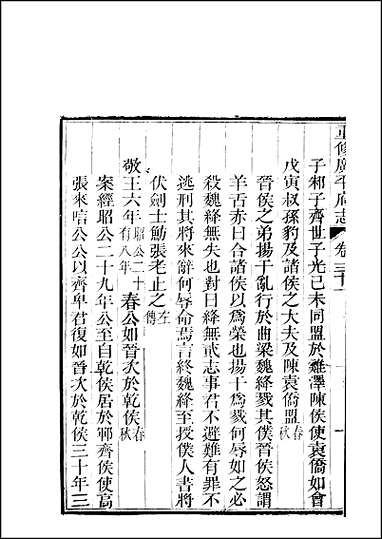 重修廣平府志 卷三十一 一
子邾子齊世子光己未同盟於雞澤陳侯使袁僑如會
戊寅叔孫豹及諸侯之大夫及陳袁僑盟春秋
晉侯之弟揚干亂行於曲梁魏絳戮其僕晉侯怒謂
羊舌赤曰合諸侯以爲榮也揚干爲戮何辱如之必
殺魏絳無失也對曰絳無貳志事君不避難有罪不
逃刑其將來辭何辱命焉言終魏絳至授僕人書將
伏劍士魴張老止之左傳
敬王六年昭公二十有八年春公如晉次於乾侯春秋
案經昭公二十九年公至自乾侯居於鄆齊侯使高
張來唁公公以齊卑君復如晉次於乾侯三十年三